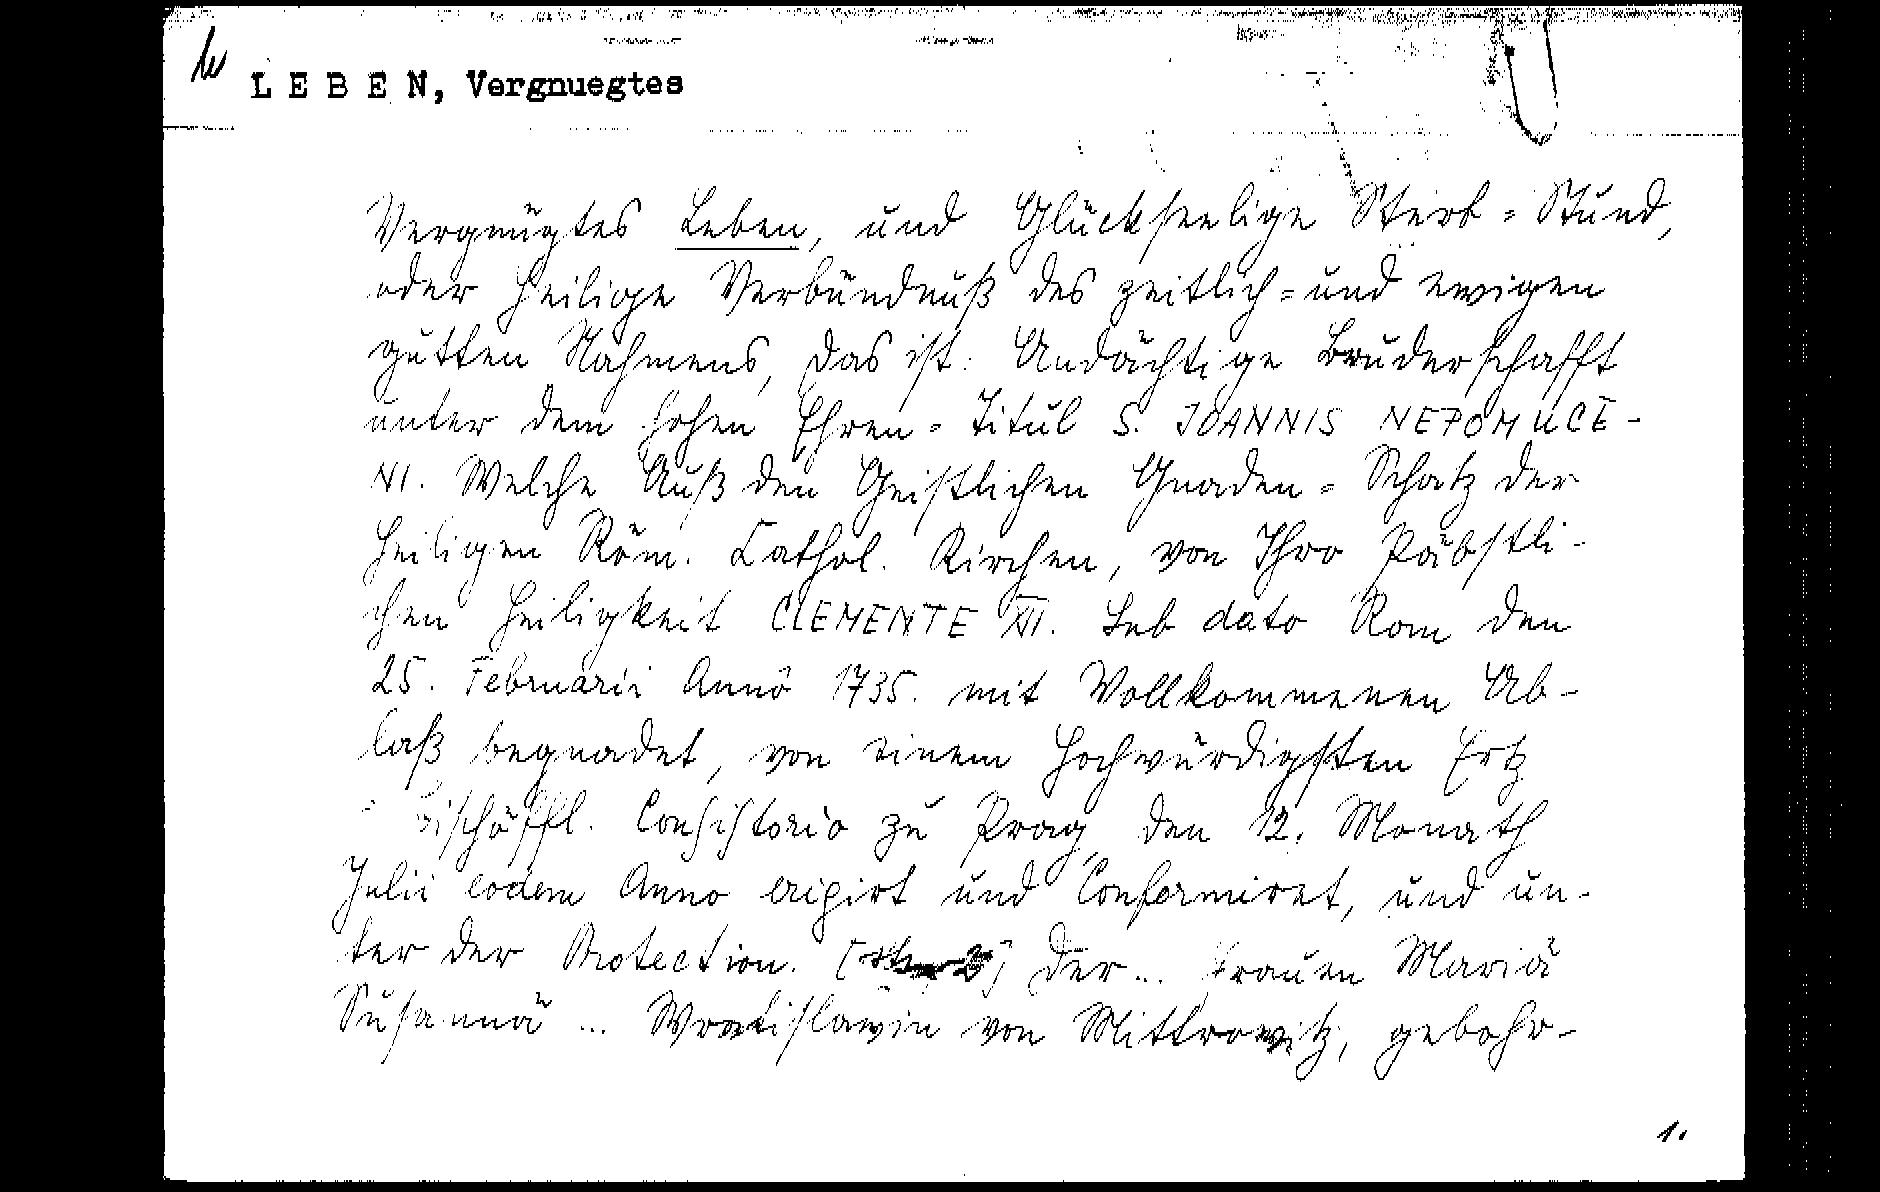 L E B E N, Vergnuegtes
Vergnügtes Leben, und Glückseelige Sterb=Stund,
oder heilige Verbündnuß des zeitlich=und ewigen
gutten Nahmens, das ist: Andächtige Bruderschafft
unter dem hohen Ehren=Titul S. JOANNIS NEPOMUCE-
NI. Welche Auß den Geistlichen Gnaden=Schatz der
heiligen Röm. Cathol. Kirchen, von Ihro Päbstli-
chen Heiligkeit CLEMENTE XII. Sub dato Rom den
25. Februarii Annô 1735. mit Vollkommenen Ab-
laß begnadet, von einem Hochwürdigsten Ertz
=Bischöffl. Consistorio zu Prag, den 12. Monath
Julii eodem Anno erigirt und Confirmiret, und un-
ter der Protection. der... Frauen Mariä
Susannä ... Wratislawin von Mittrowitz, gebohr-
1.